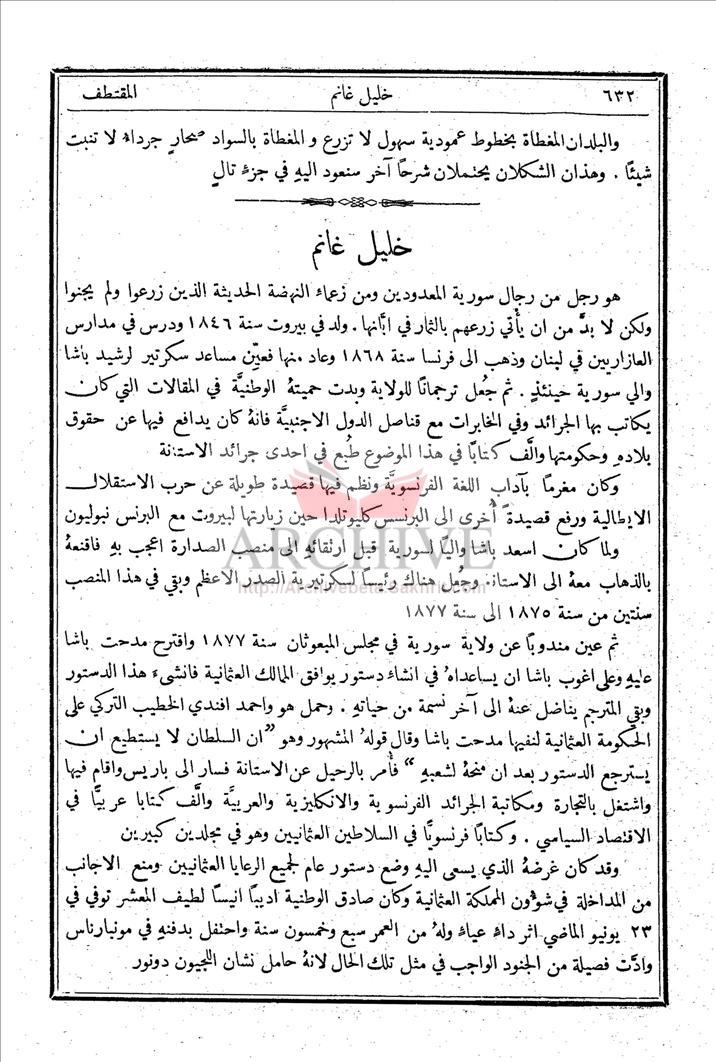 ٦٣٢ خليل غانم المقتطف
والبلدان المغطاة بخطوط عمودية سهول لا تزرع و المغطاة بالسواد صحارٍ جرداء لا تنبت
شيئًا . وهذان الشكلان يحتملان شرحًا آخر سنعود اليهِ في جزءٍ تالٍ
خليل غانم
هو رجل من رجال سورية المعدودين ومن زعماء النهضة الحديثة الذين زرعوا ولم يجنوا
ولكن لا بدَّ من ان يأْتي زرعهم بالثمار في ابَّانها . ولد في بيروت سنة ١٨٤٦ ودرس في مدارس
العازاريين في لبنان وذهب الى فرنسا سنة ١٨٦٨ وعاد منها فعيِّن مساعد سكرتير لرشيد باشا
والي سورية حينئذٍ . ثم جُعل ترجمانًا للولاية وبدت حميتهُ الوطنيَّة في المقالات التي كان
يكاتب بها الجرائد وفي المخابرات مع قناصل الدول الاجنبيَّة فانهُ كان يدافع فيها عن حقوق
بلادهِ وحكومتها والَّف كتابًا في هذا الموضوع طُبع في احدى جرائد الاستانة
وكان مغرمًا بآداب اللغة الفرنسويَّة ونظم فيها قصيدة طويلة عن حرب الاستقلال
الايطالية ورفع قصيدةً أُخرى الى البرنسس كليوتلدا حين زيارتها لبيروت مع البرنس نبوليون
ولما كان اسعد باشا واليًا لسورية قبل ارتقائهِ الى منصب الصدارة اعجب بهِ فاقنعهُ
بالذهاب معهُ الى الاستانة وجُعل هناك رئيسًا لسكرتيرية الصدر الاعظم وبقي في هذا المنصب
سنتين من سنة ١٨٧٥ الى سنة ١٨٧٧
ثم عين مندوبًا عن ولاية سورية في مجلس المبعوثان سنة ١٨٧٧ واقترح مدحت باشا
عليهِ وعلى اغوب باشا ان يساعداهُ في انشاء دستور يوافق الممالك العثمانية فانشىءَ هذا الدستور
وبقي المترجم يناضل عنهُ الى آخر نسمة من حياتهِ . وحمل هو واحمد افندي الخطيب التركي على
الحكومة العثمانية لنفيها مدحت باشا وقال قولهُ المشهور وهو "ان السلطان لا يستطيع ان
يسترجع الدستور بعد ان منحهُ لشعبهِ" فأُمر بالرحيل عن الاستانة فسار الى باريس واقام فيها
واشتغل بالتجارة ومكاتبة الجرائد الفرنسوية والانكليزية والعربيَّة والَّف كتابا عربيًّا في
الاقتصاد السياسي . وكتابًا فرنسويًّا في السلاطين العثمانيين وهو في مجلدين كبيرين
وقد كان غرضهُ الذي يسعى اليهِ وضع دستور عام لجميع الرعايا العثمانيين ومنع الاجانب
من المداخلة في شؤُون المملكة العثمانية وكان صادق الوطنية اديبًا انيسًا لطيف المعشر توفي في
٢٣ يونيو الماضي اثر داءٍ عياءٍ ولهُ من العمر سبع وخمسون سنة واحتفل بدفنهِ في مونبارناس
وادَّت فصيلة من الجنود الواجب في مثل تلك الحال لانهُ حامل نشان اللجيون دونور
ARCHIVE
http://Archivebeta.Sakhrit.com